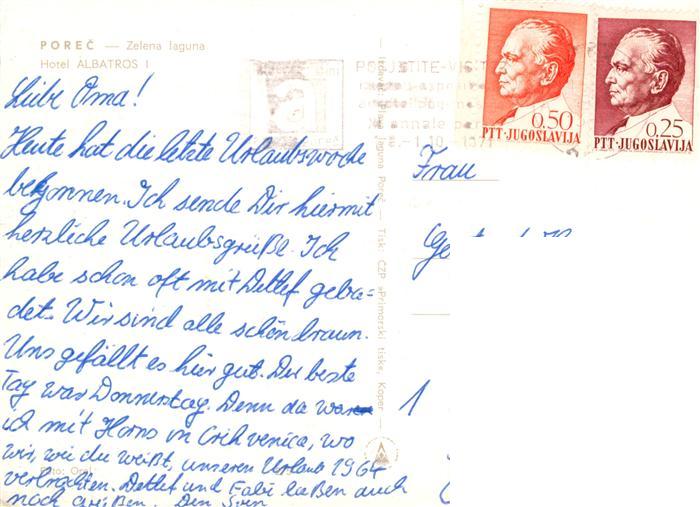 POREČ — Zelena laguna
Hotel ALBATROS I
Liebe Oma!
Heute hat die letzte Urlaubswoche
begonnen. Ich sende Dir hiermit
herzliche Urlaubsgrüße. Ich
habe schon oft mit Detlef geba-
det. Wir sind alle schön braun.
Uns gefällt es hier gut. Der beste
Tag war Donnerstag. Denn da war
ich mit Horns in Crikvenica, wo
wir, wie du weißt, unseren Urlaub 1964
verbrachten. Detlef und Fabi laßen auch
noch grüßen. Dein Sven
Foto:
Izdavač: Plava laguna Poreč — Tisk: ČZP »Primorski tisk«, Koper
POSJETITE-VISIT
1971
0.50
PTT·JUGOSLAVIJA
0.25
PTT·JUGOSLAVIJA
Frau
1